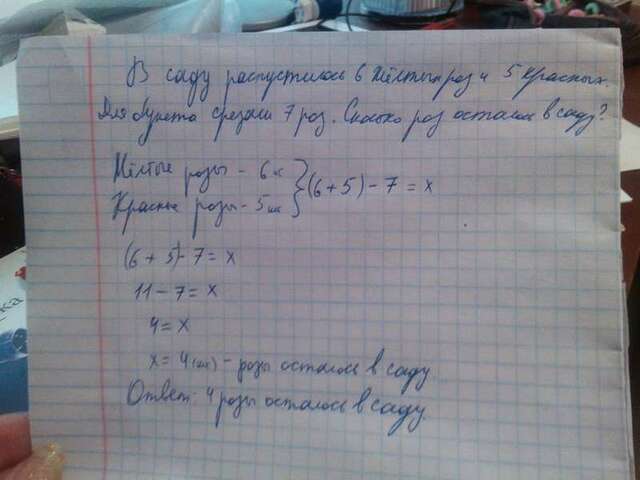 В саду распустилось 6 жёлтых роз и 5 красных.
Для букета срезали 7 роз. Сколько роз осталось в саду?
Жёлтые розы - 6 шт
Красные розы - 5 шт } (6+5)-7=x
(6+5)-7=x
11-7=x
4=x
x=4(шт) - розы осталось в саду
Ответ: 4 розы осталось в саду.